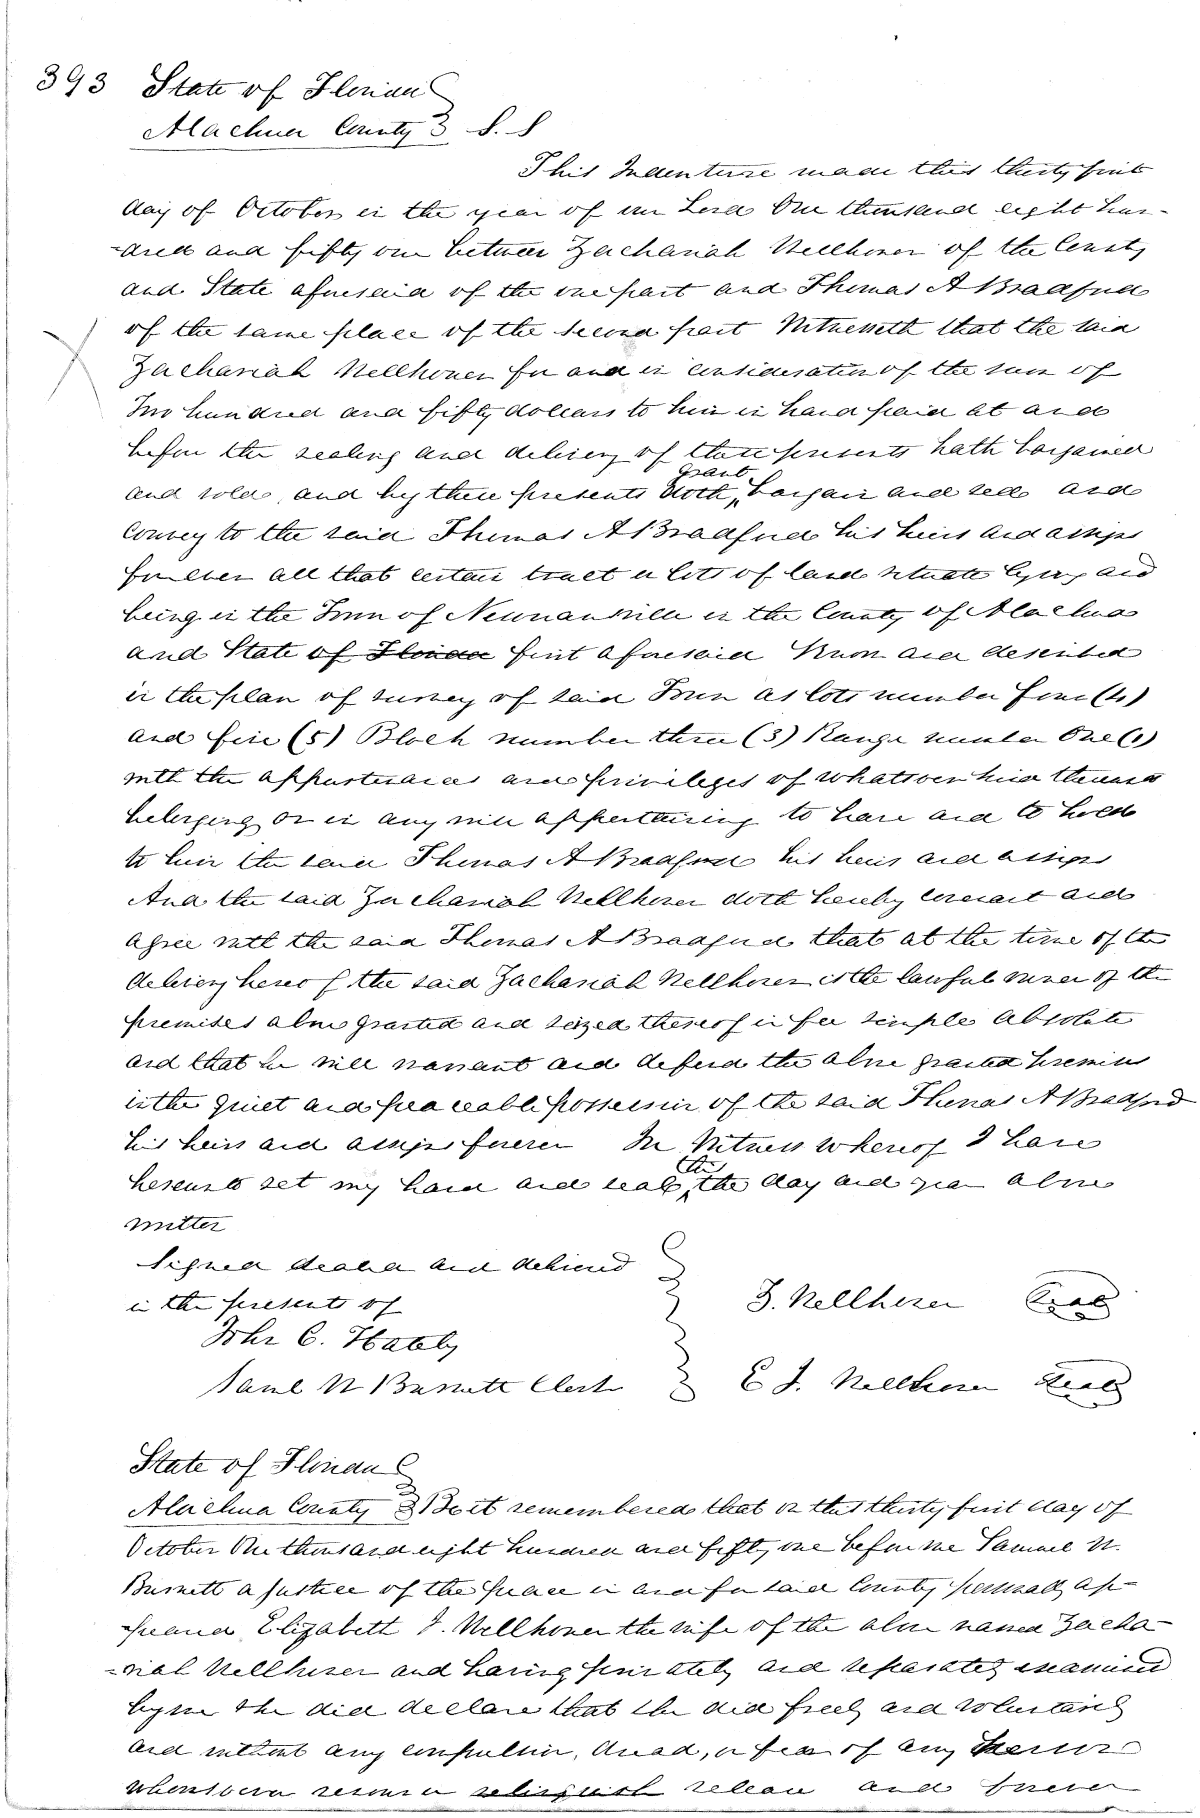 393 State of Florida
Alachua County S.S
This Indenture made this thirty first
day of October in the year of our Lord One thousand eight hun-
-dred and fifty one between Zachariah Wellhoner of the County
and State aforesaid of the one part and Thomas A Bradford
of the same place of the second part Witnesseth that the said
Zachariah Wellhoner for and in consideration of the sum of
Two hundred and fifty dollars to him in hand paid at and
before the sealing and delivery of these presents hath bargained
and sold, and by these presents doth grant bargain and sell and
convey to the said Thomas A Bradford his heirs and assigns
forever all that certain tract or lots of land situate lying and
being in the Town of Newnansville in the County of Alachua
and State of Florida first aforesaid Known and described
in the plan of survey of said Town as lots number four (4)
and five (5) Block number three (3) Range number One (1)
with the appurtenances and privileges of whatsoever kind thereunto
belonging or in any wise appertaining to have and to hold
to him the said Thomas A Bradford his heirs and assigns
And the said Zachariah Wellhoner doth hereby covenant and
agree with the said Thomas A Bradford that at the time of the
delivery hereof the said Zachariah Wellhoner is the lawful owner of the
premises above granted and seized thereof in fee simple absolute
and that he will warrant and defend the above granted premises
in the quiet and peaceable possession of the said Thomas A Bradford
his heirs and assigns forever In Witness whereof I have
hereunto set my hand and seal this the day and year above
written
Signed sealed and delivered
in the presents of
Z. Wellhoner Seal
John C.
Saml N Burnett Clerk E J. Wellhoner Seal
State of Florida
Alachua County Be it remembered that on this thirty first day of
October One thousand eight hundred and fifty one before me Samuel N.
Burnett a justice of the peace in and for said County personally ap-
-peared Elizabeth J. Wellhoner the wife of the above named Zacha-
-riah Wellhoner and having privately and separately examined
by me she did declare that she did freely and voluntarily
and without any compulsion, dread, or fear of any
whomsoever relinquish release and forever